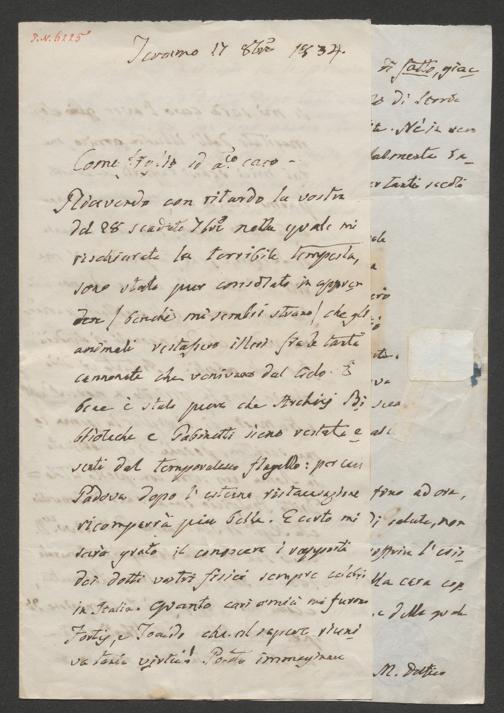 P.N. 6225
Teramo 17 8bre 1834.
Come figlio ed a.co caro -
Ricevendo con ritardo la vostra
del 28 scaduto 7bre nella quale mi
rischiarate la terribile tempesta,
sono stato pur consolato in appren
dere (benchè mi sembri strano) che gli
animali restassero illesi fra le tante
cannonate che venivano dal Cielo. E
bene è stato pure che Archivj Bi
blioteche e Gabinetti sieno restate e
senti dal temporalesco flagello: per cui
Padova dopo l'esterna ristaurazione
ricomparrà più bella. E certo mi
sarà grato il conoscere i rapporti
dei dotti vostri fisici sempre celebri
in Italia. Quanto cari amici mi furono
Fortis, e Toaldo che al sapere riuni
va tanta virtù! Potete immaginare
di fatto, giac
di Storia
Nè io
almente
tanti secoli
fino ad ora,
di salute, non
offrire l'
lla casa
e delle quali
M. Delfico